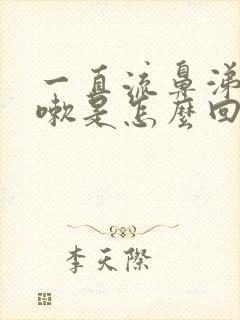 一直流鼻涕
嗽是怎麼回
李天際